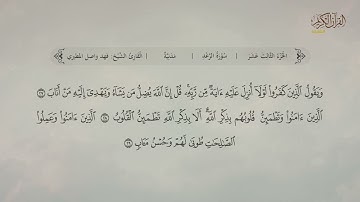 القرآن الكريم
الجزء الثالث عشر | سورة الرعد | مدنية | القارئ الشيخ: فهد واصل المطيري
وَيَقُولُ ٱلَّذِينَ كَفَرُوا۟ لَوْلَآ أُنزِلَ عَلَيْهِ ءَايَةٌ مِّن رَّبِّهِۦ ۗ قُلْ إِنَّ ٱللَّهَ يُضِلُّ مَن يَشَآءُ وَيَهْدِىٓ إِلَيْهِ مَنْ أَنَابَ ٢٧
ٱلَّذِينَ ءَامَنُوا۟ وَتَطْمَئِنُّ قُلُوبُهُم بِذِكْرِ ٱللَّهِ ۗ أَلَا بِذِكْرِ ٱللَّهِ تَطْمَئِنُّ ٱلْقُلُوبُ ٢٨ ٱلَّذِينَ ءَامَنُوا۟ وَعَمِلُوا۟
ٱلصَّـٰلِحَـٰتِ طُوبَىٰ لَهُمْ وَحُسْنُ مَـَٔابٍ ٢٩